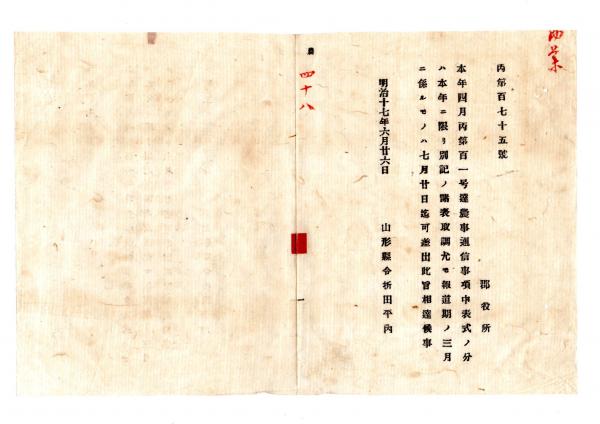 丙第百七十五號
郡役所
本年四月丙第百一号達農事通信事項中表式ノ分
ハ本年ニ限リ別記ノ諸表取調尤モ報道期ノ三月
ニ係ルモノハ七月廿日迄可差出此旨相達候事
明治十七年六月廿六日
山形縣令折田平内
農
四十八